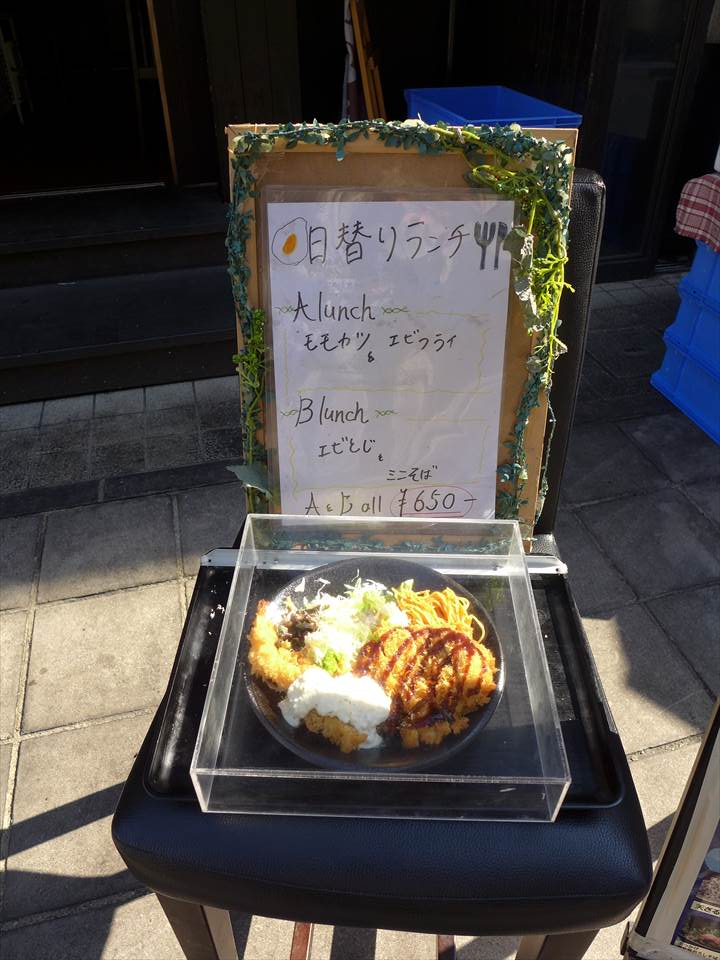 日替りランチ
A lunch
モモカツ
& エビフライ
B lunch
エビとじ
&
ミニそば
A & B all ¥650-